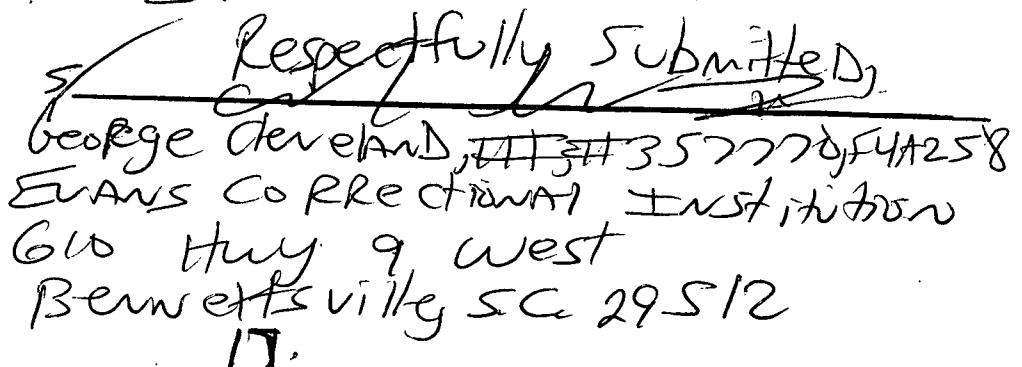 Respectfully Submitted,
S/
George Cleveland, III, #357770, F4A258
Evans Correctional Institution
610 Hwy 9 West
Bennettsville, S.C. 29512
17.